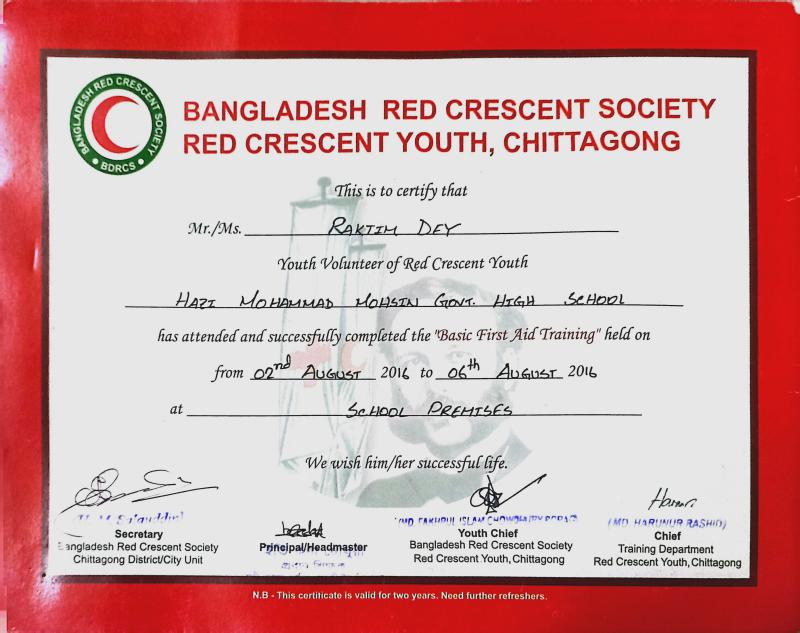 BANGLADESH RED CRESCENT SOCIETY
BDRCS
BANGLADESH RED CRESCENT SOCIETY
RED CRESCENT YOUTH, CHITTAGONG
This is to certify that
Mr./Ms. RAKTIM DEY
Youth Volunteer of Red Crescent Youth
HAZI MOHAMMAD MOHSIN GOVT. HIGH SCHOOL
has attended and successfully completed the "Basic First Aid Training" held on
from 02nd AUGUST 2016 to 06th AUGUST 2016
at SCHOOL PREMISES
We wish him/her successful life.
Secretary
Bangladesh Red Crescent Society
Chittagong District/City Unit
Principal/Headmaster
(MD FAKHRUL ISLAM CHOWDHURY
Youth Chief
Bangladesh Red Crescent Society
Red Crescent Youth, Chittagong
(MD. HARUNUR RASHID)
Chief
Training Department
Red Crescent Youth, Chittagong
N.B - This certificate is valid for two years. Need further refreshers.